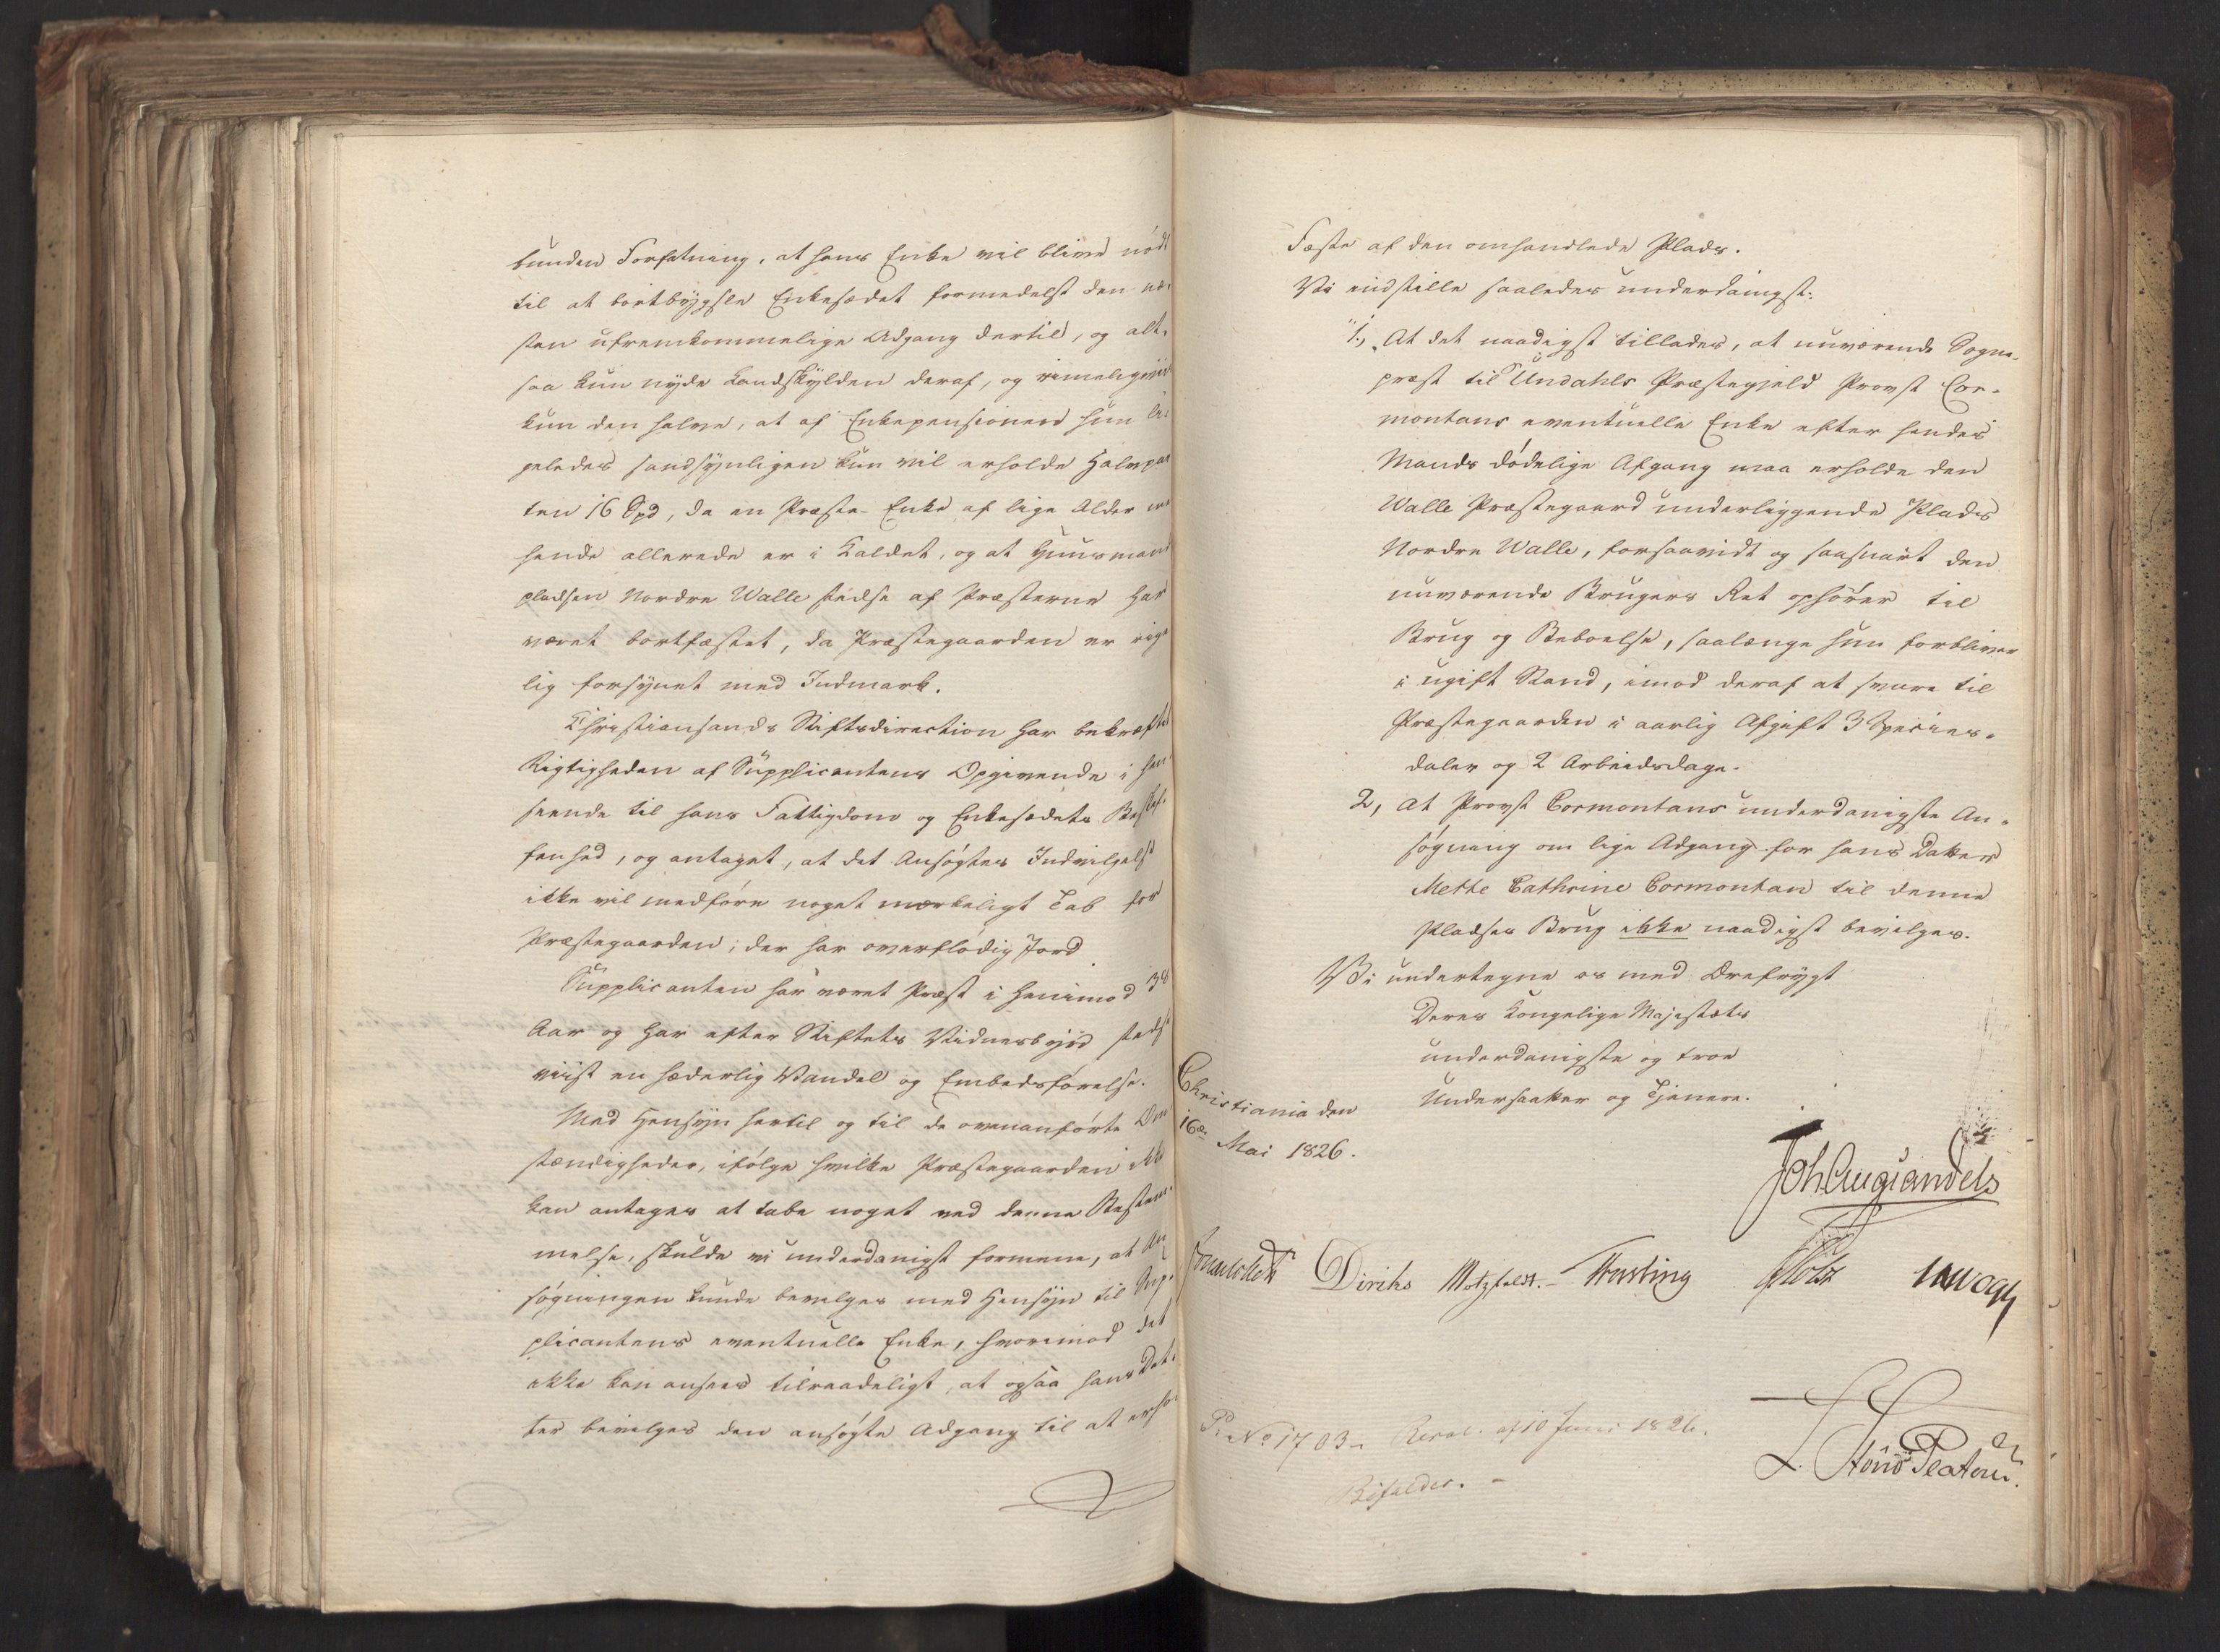 bunden Forfatning, at hans Enke vil blive nødt
til at bortbygsle Enkesædet formedelst den næ-
sten ufremkommelige Adgang dertil, og alt-
saa kun nyde Landskylden deraf, og rimeligviis
kun den halve, at af Enkepensionen hun li-
geledes sandsynligen kun vil erholde Halvpar
ten 16 Spd, da en Præste-Enke af lige Alder med
hende allerede er i Kaldet, og at Huusmands
pladsen Nordre Walle stedse af Præsterne har
været bortfæstet, da Præstegaarden er rige
lig forsynet med Indmark.
Christiansands Stiftsdirection har bekræftet
Rigtigheden af Supplicantens Opgivende i Hen
seende til hans Fattigdom og Enkesædets Beskaf-
fenhed, og antaget, at det Ansøgtes Indvilgelse
ikke vil medføre noget mærkeligt Tab for
Præstegaarden, der har overflødig Jord.
Supplicanten har været Præst i henimod 38
Aar og har efter Stiftets Vidnesbyrd stedse
viist en hæderlig Vandel og Embedsførelse.
Med Hensyn hertil og til de ovenanførte Om
stændigheder, ifølge hvilke Præstegaarden ikke
kan antages at tabe noget ved denne Bestem-
melse, skulde vi underdanigst formene, at An
søgningen kunde bevilges med Hensyn til Sup-
plicantens eventuelle Enke, hvorimod det
ikke kan ansees tilraadeligt, at ogsaa hans Dat-
ter bevilges den ansøgte Adgang til at erhol-
Fæste af den omhandlede Plads.
Vi indstille saaledes underdanigst:
"1., At det naadigst tillades, at nuværende Sogne-
præst til Undahls Præstegjeld Provst Cor-
montans eventuelle Enke efter hendes
Mands dødelige Afgang maa erholde den
Walle Præstegaard underliggende Plads
Nordre Walle, forsaavidt og saasnart den
nuværende Brugers Ret ophører til
Brug og Beboelse, saalænge hun forbliver
i ugift Stand, imod deraf at svare til
Præstegaarden i aarlig Afgift 3 Species-
daler og 2 Arbeidsdage.
2, At Provst Cormontans underdanigste An-
søgning om lige Adgang for hans Datter
Mette Cathrine Cormontan til denne
Pladses Brug ikke naadigst bevilges.
Vi undertegne os med Ærefrygt
Deres Kongelige Majestæts
underdanigste og troe
Undersaatter og Tjenere.
Christiania den
16de Mai 1826.
Joh Aug Sandels
Diriks Motzfeldt. Treschow Holst
No 1703. Resol. af 10 Juni 1826.
Bifaldes.